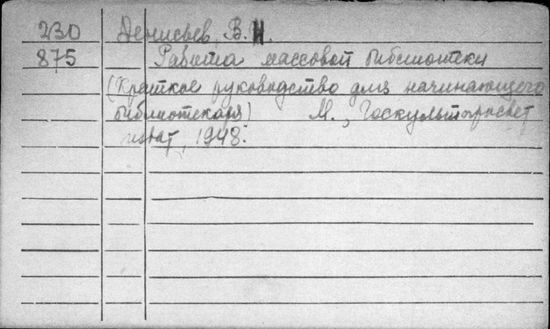 230 Денисьев, В.Н.
875 Работа массовой библиотеки
(Краткое руководство для начинающего
библиотекаря) М., Госкультпросвет
издат, 1948.